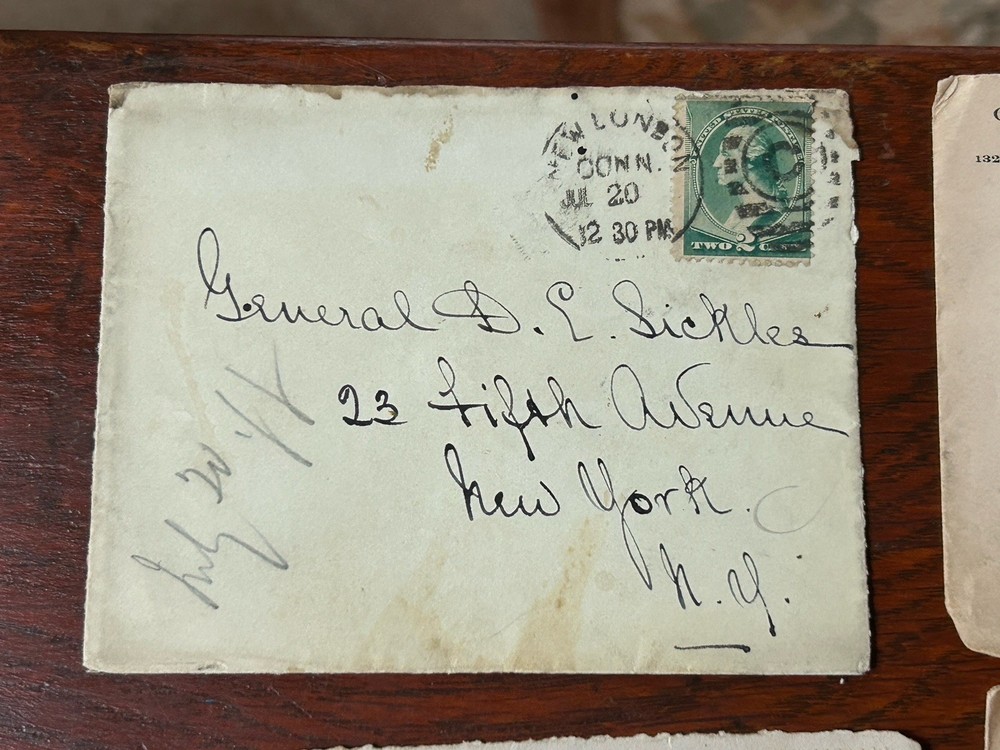 NEW LONDON
CONN.
JUL 20
12 30 PM
UNITED STATES POSTAGE
TWO 2 C
General D. E. Sickles
23 Fifth Avenue
New York.
N. Y.
July 20
C
132